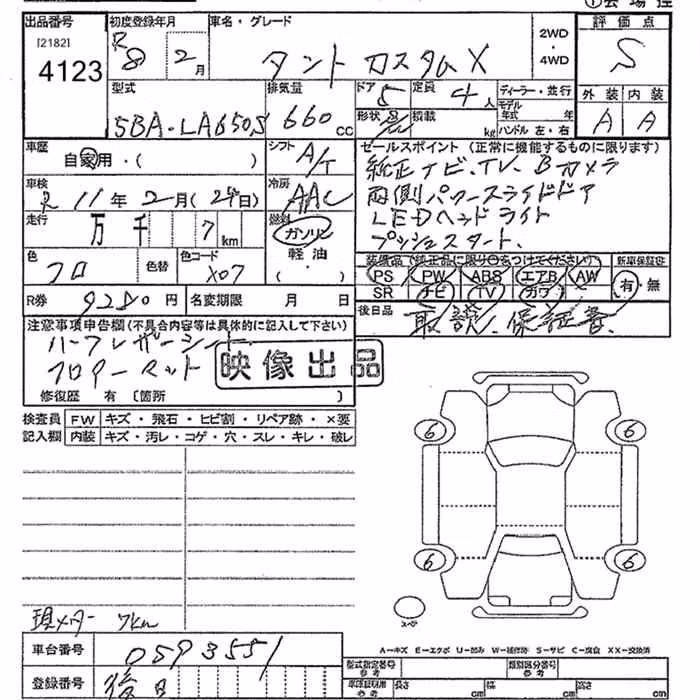 出品番号 初度登録年月 車名・グレード 2WD・4WD 評価点
[2182]
4123 R8 2月 タント カスタムX S
型式 排気量 ドア 5 定員 4人 ディーラー・並行 外装 内装
5BA-LA650S 660cc 形状 積載 kg モデル年式 年 A A
ハンドル 左・右
車歴 シフト セールスポイント (正常に機能するものに限ります)
自家用・( ) A/T 純正ナビ、TV、Bカメラ
車検 冷房 両側パワースライドドア
R11年2月(24日) AAC LEDヘッドライト
走行 燃料 プッシュスタート、
万千 7km ガソリン
色 色替 色コード 軽油 装備品(純正品に限り○をつけてください) 新車保証書
クロ X07 ・( ) PS PW ABS エアB AW 有・無
R券 9280円 名変期限 月 日 SR ナビ TV カワ
後日品 取説、保証書、
注意事項申告欄(不具合内容等は具体的に記入して下さい)
ハーフレザーシート
フロアーマット 映像出品
修復歴 有 〔箇所 〕
検査員 FW キズ・飛石・ヒビ割・リペア跡・×要
記入欄 内装 キズ・汚レ・コゲ・穴・スレ・キレ・破レ
6 6
6 6
スペア
現メーター 7km
A−キズ E−エクボ U−凹み W−補修跡 S−サビ C−腐食 XX−交換済
車台番号 0593551
登録番号 後日
型式指定番号 参考 類別区分番号 参考
車検証利用 参考 長さ cm 幅 cm 高さ cm